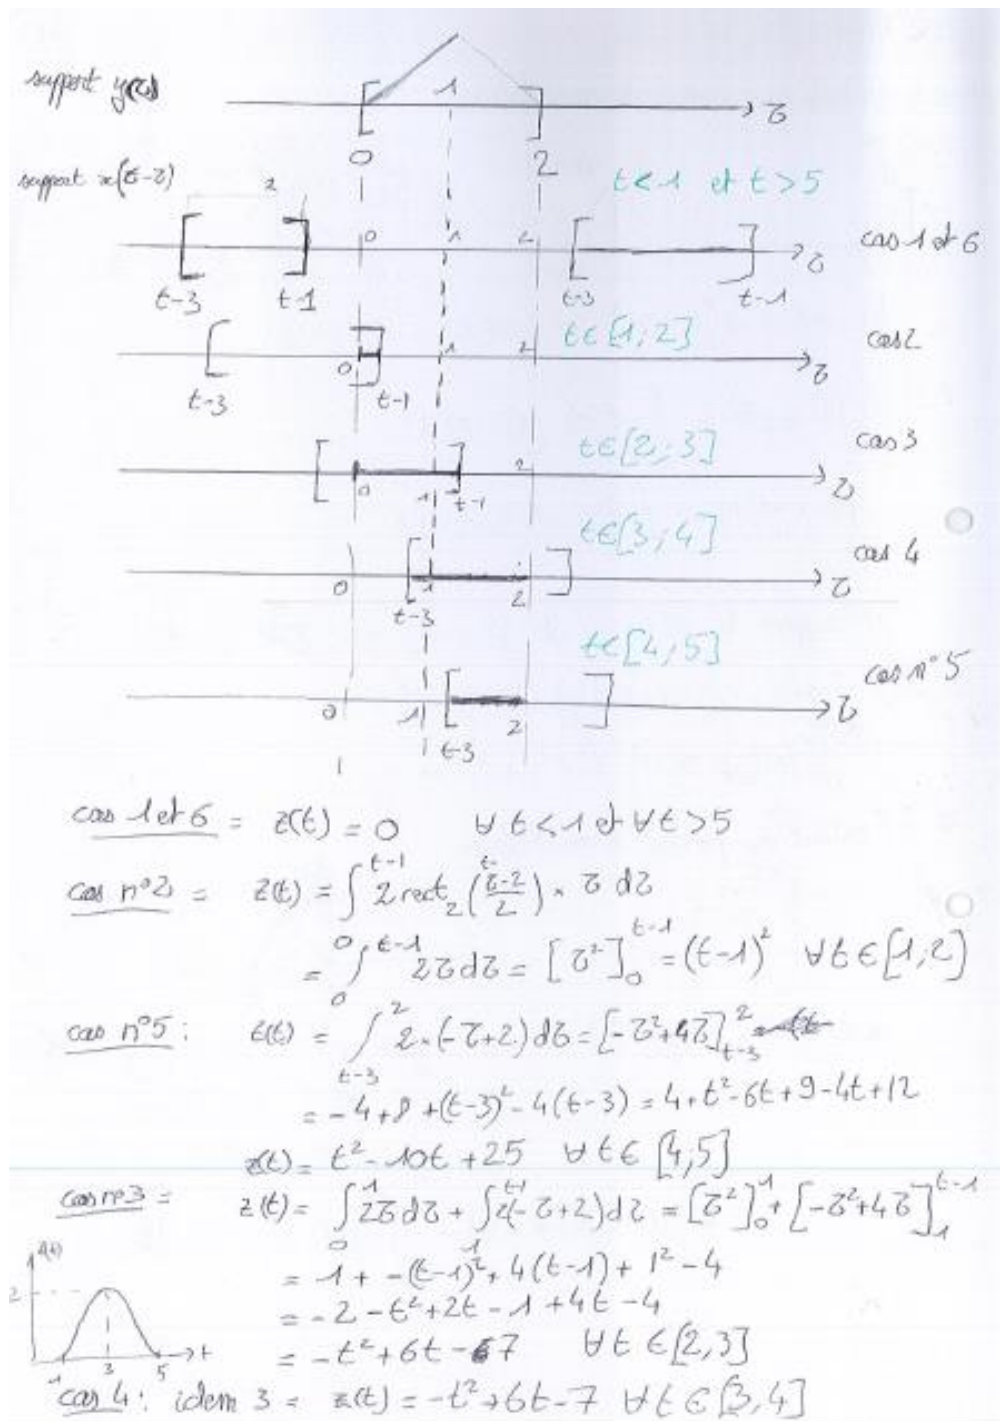 support y(τ)
1
τ
0 2
support x(t-τ)
2
t<1 et t>5
0 1 2 τ cas 1 et 6
t-3 t-1 t-3 t-1
t∈[1;2] cas 2
0 1 2 τ
t-3 t-1
t∈[2;3] cas 3
0 1 t-1 2 τ
t∈[3;4] cas 4
0 t-3 1 2 τ
t∈[4;5] cas n°5
0 1 t-3 2 τ
cas 1 et 6 = z(t) = 0 ∀ t<1 et ∀ t>5
cas n°2 = z(t) = ∫₀^{t-1} 2 rect₂((t-τ-2)/2) × τ dτ
= ∫₀^{t-1} 2τdτ = [τ²]₀^{t-1} = (t-1)² ∀t∈[1;2]
cas n°5 : z(t) = ∫_{t-3}^2 2×(-τ+2)dτ = [-τ²+4τ]_{t-3}^2
= -4+8+(t-3)²-4(t-3) = 4+t²-6t+9-4t+12
z(t) = t²-10t+25 ∀t∈[4;5]
cas n°3 = z(t) = ∫₀^1 2τdτ + ∫₁^{t-1} 2(-τ+2)dτ = [τ²]₀^1 + [-τ²+4τ]₁^{t-1}
= 1 + -(t-1)²+4(t-1)+1²-4
= -2-t²+2t-1+4t-4
= -t²+6t-7 ∀t∈[2,3]
z(t)
2
1 3 5 t
cas 4 : idem 3 = z(t) = -t²+6t-7 ∀t∈[3,4]